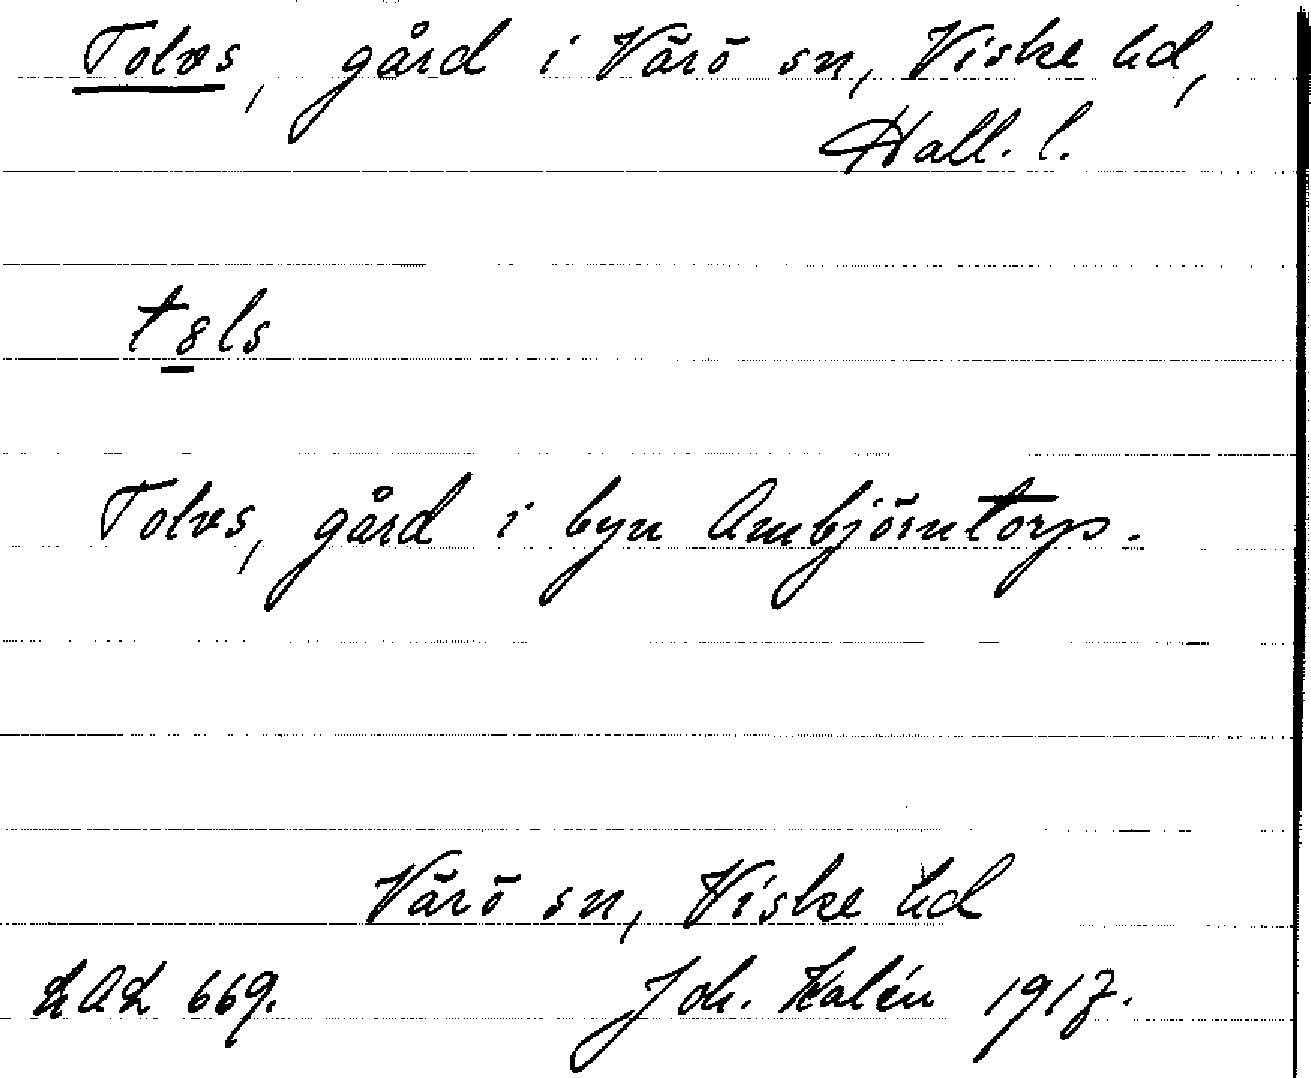 Tolvs, gård i Värö sn, Viske hd,
Hall. l.
t8ls
Tolvs, gård i byn Ambjörntorp.
Värö sn, Viske hd
LAL 669. Joh. Kalén 1917.